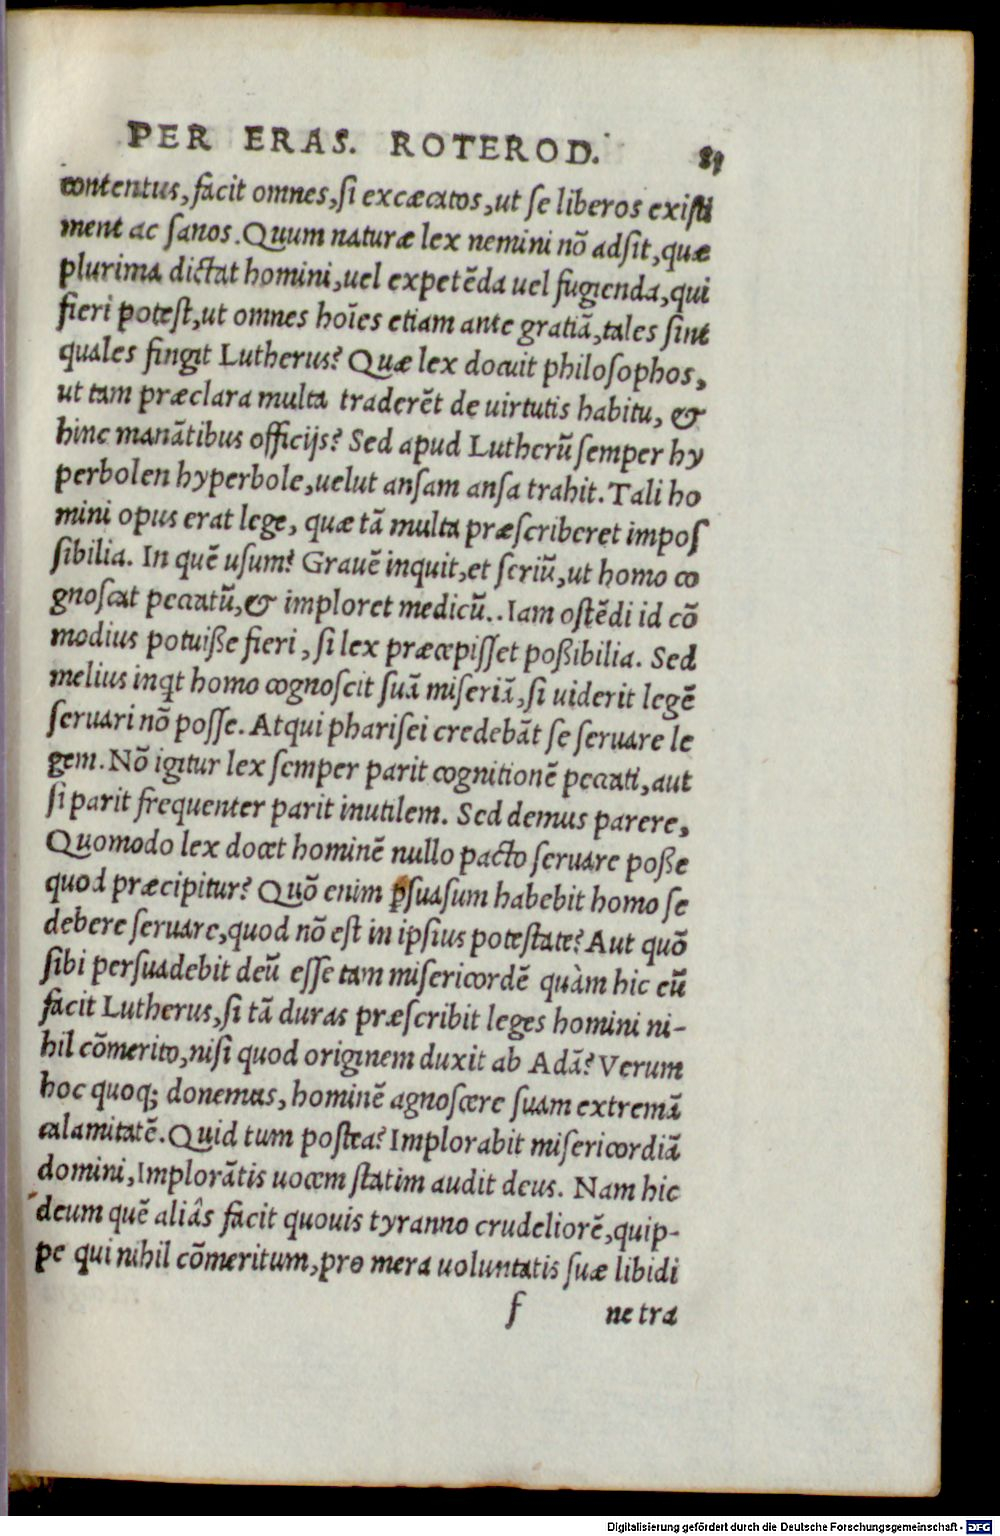 PER ERAS. ROTEROD. 81
contentus, facit omnes, si excæcatos, ut se liberos existi
ment ac sanos. Quum naturæ lex nemini nõ adsit, quæ
plurima dictat homini, uel expetẽda uel fugienda, qui
fieri potest, ut omnes hoĩes etiam ante gratiã, tales sint
quales fingit Lutherus? Quæ lex docuit philosophos,
ut tam præclara multa traderẽt de uirtutis habitu, &
hinc manãtibus officijs? Sed apud Lutherũ semper hy
perbolen hyperbole, uelut ansam ansa trahit. Tali ho
mini opus erat lege, quæ tã multa præscriberet impos
sibilia. In quẽ usum? Grauẽ inquit, et seriũ, ut homo co
gnoscat peccatũ, & imploret medicũ.. Iam ostẽdi id cõ
modius potuiße fieri, si lex præcepisset poßibilia. Sed
melius inqt homo cognoscit suã miseriã, si uiderit legẽ
seruari nõ posse. Atqui pharisei credebãt se seruare le
gem. Nõ igitur lex semper parit cognitionẽ peccati, aut
si parit frequenter parit inutilem. Sed demus parere,
Quomodo lex docet hominẽ nullo pacto seruare poße
quod præcipitur? Quõ enim ꝑsuasum habebit homo se
debere seruare, quod nõ est in ipsius potestate? Aut quõ
sibi persuadebit deũ esse tam misericordẽ quàm hic eũ
facit Lutherus, si tã duras præscribit leges homini ni-
hil cõmerito, nisi quod originem duxit ab Adã? Verum
hoc quoq; donemus, hominẽ agnoscere suam extremã
calamitatẽ. Quid tum postea? Implorabit misericordiã
domini, Implorãtis uocem statim audit deus. Nam hic
deum quẽ aliâs facit quouis tyranno crudeliorẽ, quip-
pe qui nihil cõmeritum, pro mera uoluntatis suæ libidi
f ne tra
Digitalisierung gefördert durch die Deutsche Forschungsgemeinschaft - DFG